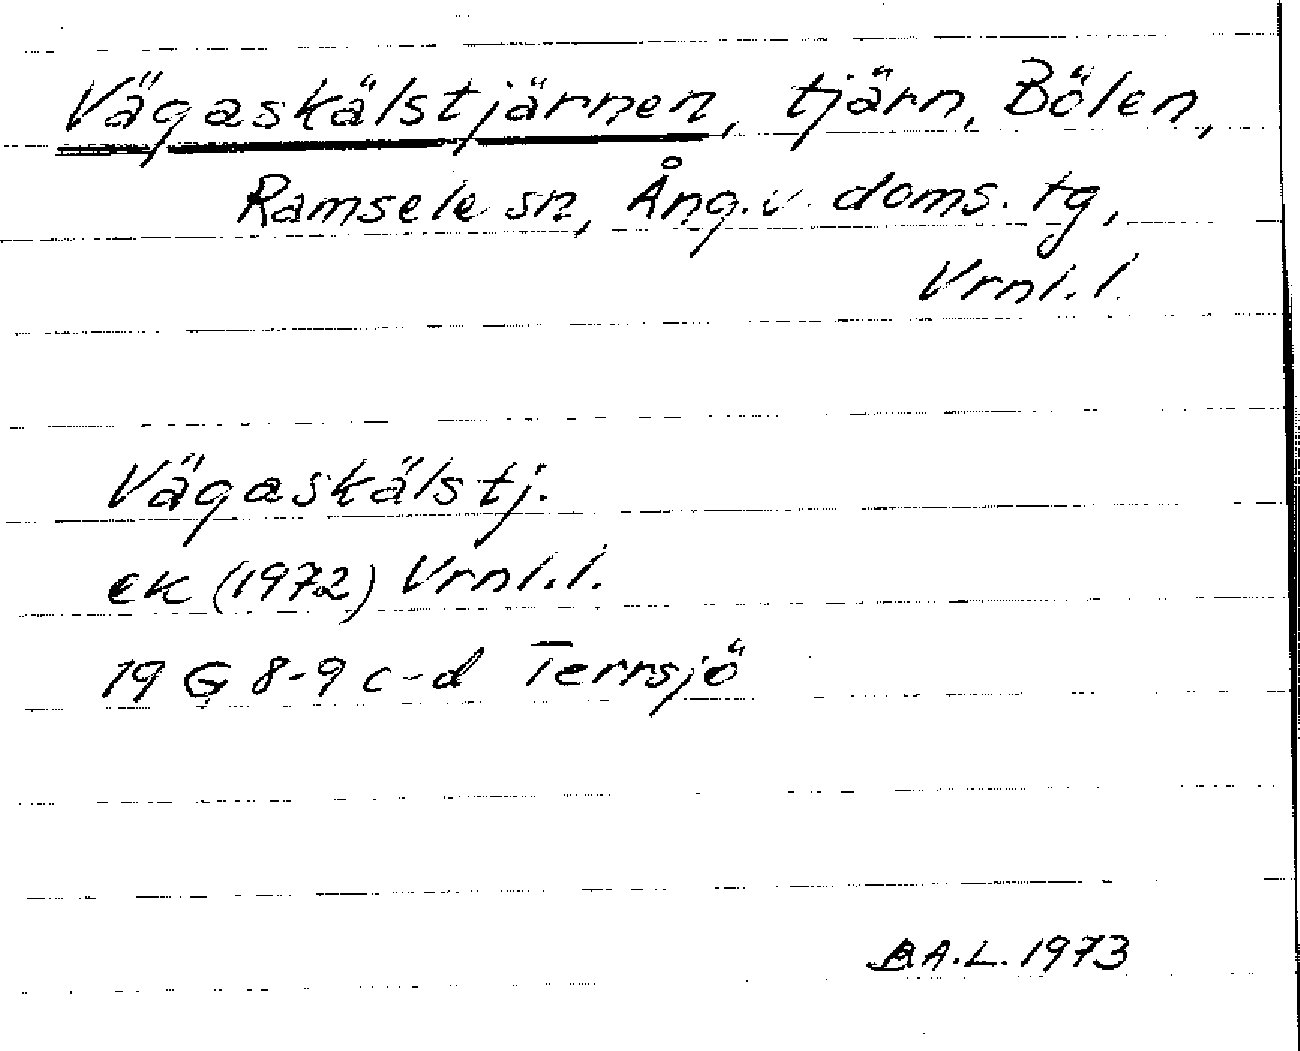 Vägaskälstjärnen, tjärn, Bölen,
Ramsele sn, Ång.v. doms. tg,
Vrnl.l.
Vägaskälstj.
ek (1972) Vrnl.l.
19 G 8-9 c-d Terrsjö
B A.L. 1973